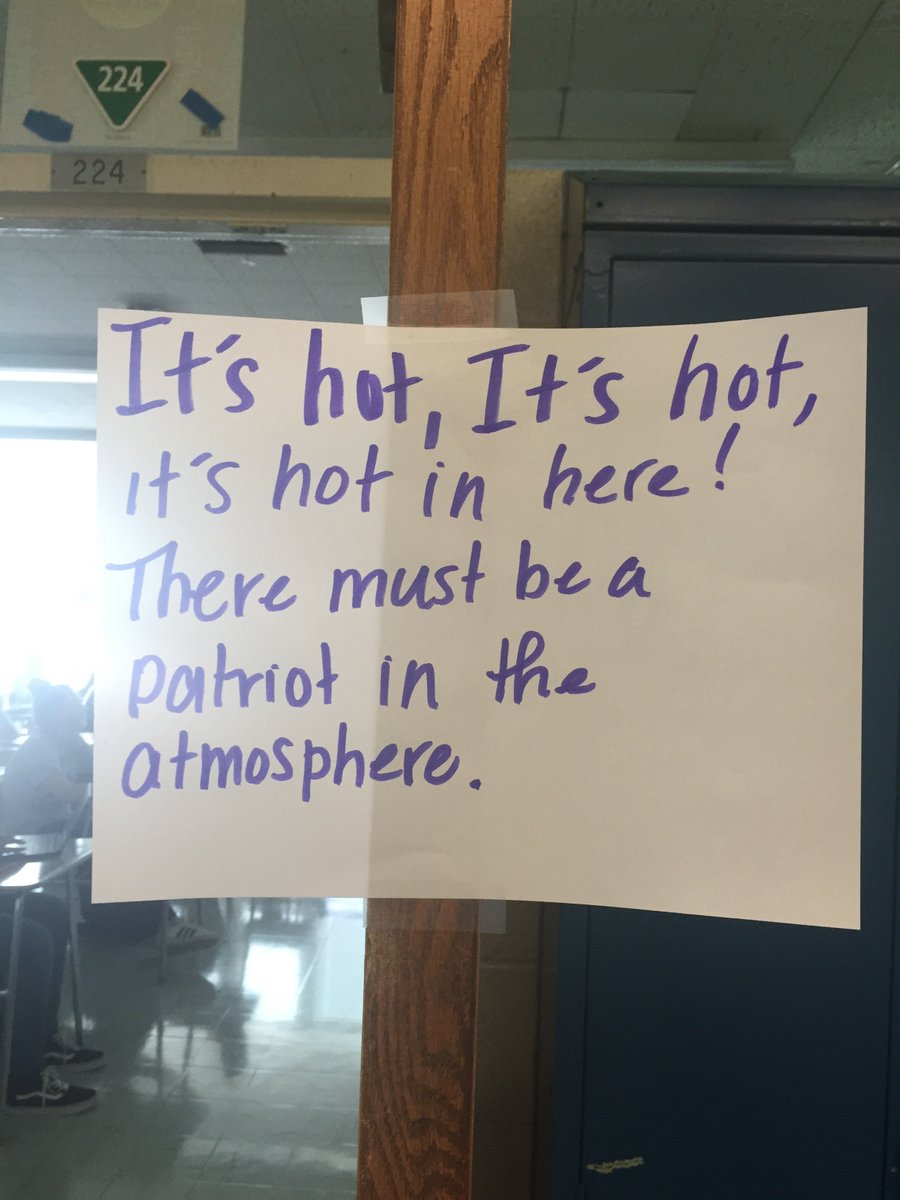 224
224
It's hot, It's hot,
it's hot in here!
There must be a
patriot in the
atmosphere.